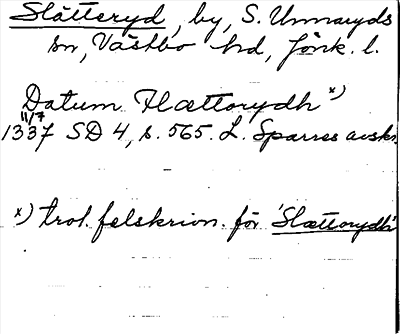 Slätteryd, by, S. Unnaryds
sn, Västbo hd, Jönk. l.
Datum Hættorydh x)
11/7
1337 SD 4, s. 565. L. Sparres avskr.
x) trol. felskrivn. för 'Slættorydh'